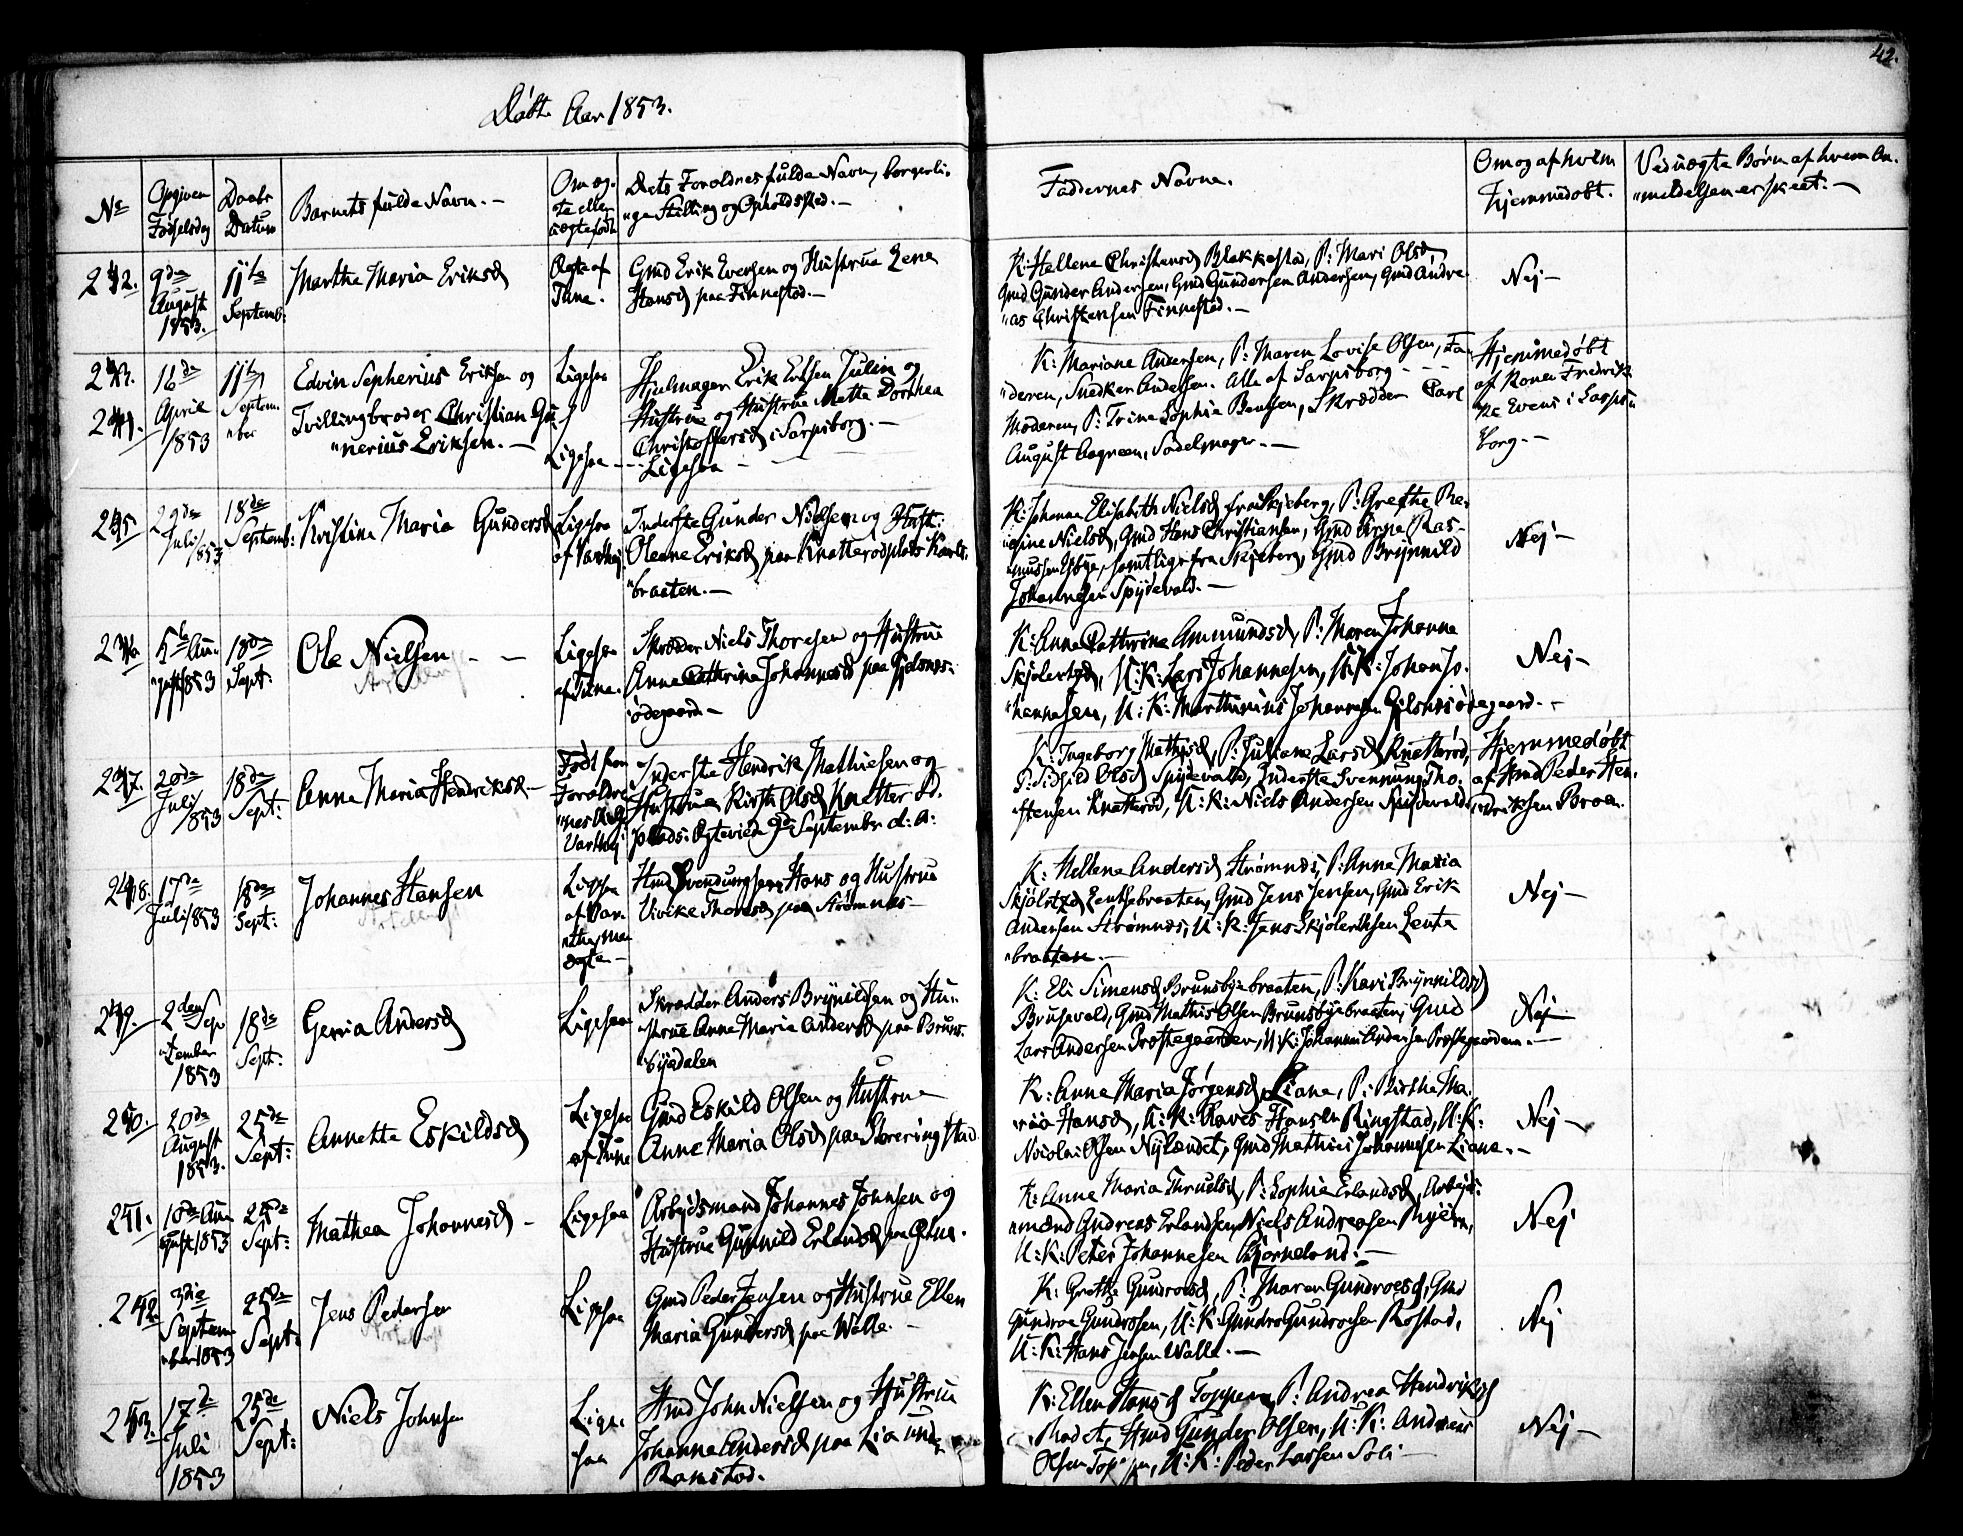 42.
Døbte Aar 1853.
No
Opgiven Fødselsdag
Daabs Datum
Barnets fulde Navn. —
Om ægte eller uægte født
Dets Forældres fulde Navn, borgerli-
"ge Stilling og Opholdssted. —
Faddernes Navne.
Om og af hvem
hjemmedøbt.
Ved uægte Børn af hvem An-
"meldelsen er skeet. —
242.
9de August 1853.
11te Septemb:
Martha Maria Eriksd
Ægte af Tune.
Gmd Erik Eversen og Hustrue Lene
Hansd paa Finnestad. —
K: Hellene Christensd Blakkestad, P: Mari Olsd,
Gmd Gunder Andersen, Gmd Gundersen Andersen, Gmd Andre-
"as Christensen Finnestad. —
Nej —
243.
244.
16de April 1853
11te Septem-
"ber
Edvin Sepherius Eriksen og
Tvillingbroder Christian Gu-
"nerius Eriksen. —
Ligesaa
Ligesaa
Hjulmager Erik Eriksen Julin og
Hustrue og Hustrue Mette Dorthea
Christoffersd i Sarpsborg. —
Ligesaa —
K: Mariane Andersen, P: Maren Lovise Olsen, Fa-
"deren, Snedker Andersen. Alle af Sarpsborg - - -
Moderen, P: Trine Sophia Bentsen, Skrædder Carl
August Aagreen, Sadelmager. —
Hjemmedøbt
af Konen Fredrik-
"ke Evens i Sarps-
"borg. —
245.
29de Juli 1853
18de Septemb:
Kristine Maria Gundersd
Ligesaa
af Varteig
Inderste Gunder Nielsen og Hust:
Oleane Eriksd paa Knatterødplads Karls-
"braaten. —
K: Johanne Elisabeth Nielsd fra Skjeberg, P: Grethe Re-
"gine Nielsd, Gmd Hans Christiansen, Gmd Arne Ras-
"mussen Isbye, samtlige fra Skjeberg, Gmd Brynnild
Johannesen Spydevold. —
Nej —
246
5te Au-
"gust 1853
18de Sept:
Ole Nielsen - —
Ligesaa
af Tune.
Skrædder Niels Thoresen og Hustrue
Anne Cathrine Johannesd paa Gjelsnes-
"ødegaard —
K: Anne Cathrine Ammundsd, P: Maren Johanne
Skjølertsd, U: K: Lars Johannesen, U: K: Johan Jo-
"hannesen, U: K: Marthinius Johannesen Gjelsnesødegaard. —
Nej —
247.
20de Juli 1853
18de Sept:
Anne Maria Hendriksd. —
Født før
Forældre-
"nes
Varteig
Inderste Hendrik Mathiesen og
Hustrue Kirsti Olsd Knatterød-
plads. Ægteviede 9de September d: A:
K: Ingeborg Mathisd, P: Juliane Larsd Knatterød,
P: Sidsild Olsd Spydevold, Inderste Svennung Tho-
"stensen Knatterød, U: K: Niels Andersen Spydevold.
Hjemmedøbt
af Hmd Peder Hen-
"driksen Broen.
248.
17de Juli 1853
18de Sept:
Johannes Hansen
Ligesaa
Hmd Svendungsen Hans og Hustrue
Vivike Thoresd paa Strømnes —
K: Hellene Andersd Strømnes, P: Anne Maria
Skjølstzd Lentsebraaten, Gmd Jens Jensen, Gmd Erik
Andersen Strømnes, U: K: Jens Skjølertsen Lente-
"braaten. —
Nej —
249.
2den Sep-
"tember
1853
18de Sept:
Gerria Andersd
Ligesaa
Skrædder Anders Brynildsen og Hu-
"strue Anne Maria Andersd paa Bruns-
"byedalen
K: Eli Simensd Brunsbyebraaten, P: Kari Brynnildsd
Brusevold, Gmd Mathis Olsen Brunsbyebraaten, Gmd
Lars Andersen Prestegaarden, U: K: Johannes Andersen Prestegaarden. —
Nej —
250.
20de August 1853.
25de Sept:
Annette Eskildsd
Ligesaa
af Tune
Gmd Eskild Olsen og Hustrue
Anne Maria Olsd paa Storeringstad
K: Anne Maria Jørgensd Liane, P: Birthe Ma-
"ria Hansd, U: K: Haves Hansen Ringstad, U: K:
Nicolai Olsen Nylændet, Gmd Mathias Johannesen Liane. —
Nej —
251.
18de Au-
"gust 1853
25de Sept:
Mathea Johannesd —
Ligesaa
Arbeidsmand Johannes Johnsen og
Hustrue Gunnild Erlandsd paa Ghue.
K: Anne Maria Thrulsd, P: Sophia Erlandsd, Arbejds-
"mænd Andreas Erlandsen, Niels Andreasen Mijern,
U: K: Peter Johannesen Bjørneland. —
Nej
252
3die Septem-
"ber 1853
25de Sept:
Jens Pedersen
Ligesaa
Gmd Peder Jensen og Hustrue Ellen
Maria Gundersd paa Walle. —
K: Grethe Gundroesd, P: Maren Gundroesd, Gmd
Gundroe Gundrosen, U: K: Gundro Gundroesen Rostad,
U: K: Hans Jensen Walle. —
Nej
253.
17de Juli 1853
25de Sept:
Niels Johnsen
Lige-
saa
Hmd John Nielsen og Hustrue
Johanne Andersd paa Lia under
Ramstad.
K: Ellen Hansd Toppen, P: Andrea Hendriksd
Hmd Gunder Olsen, U: K: Andreas
Olsen Toppen, U: K: Peder Larsen Soli —
Nej —